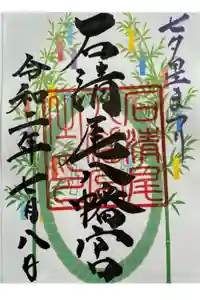 七夕星まつり
石清尾八幡宮
石清尾
令和二年七月八日